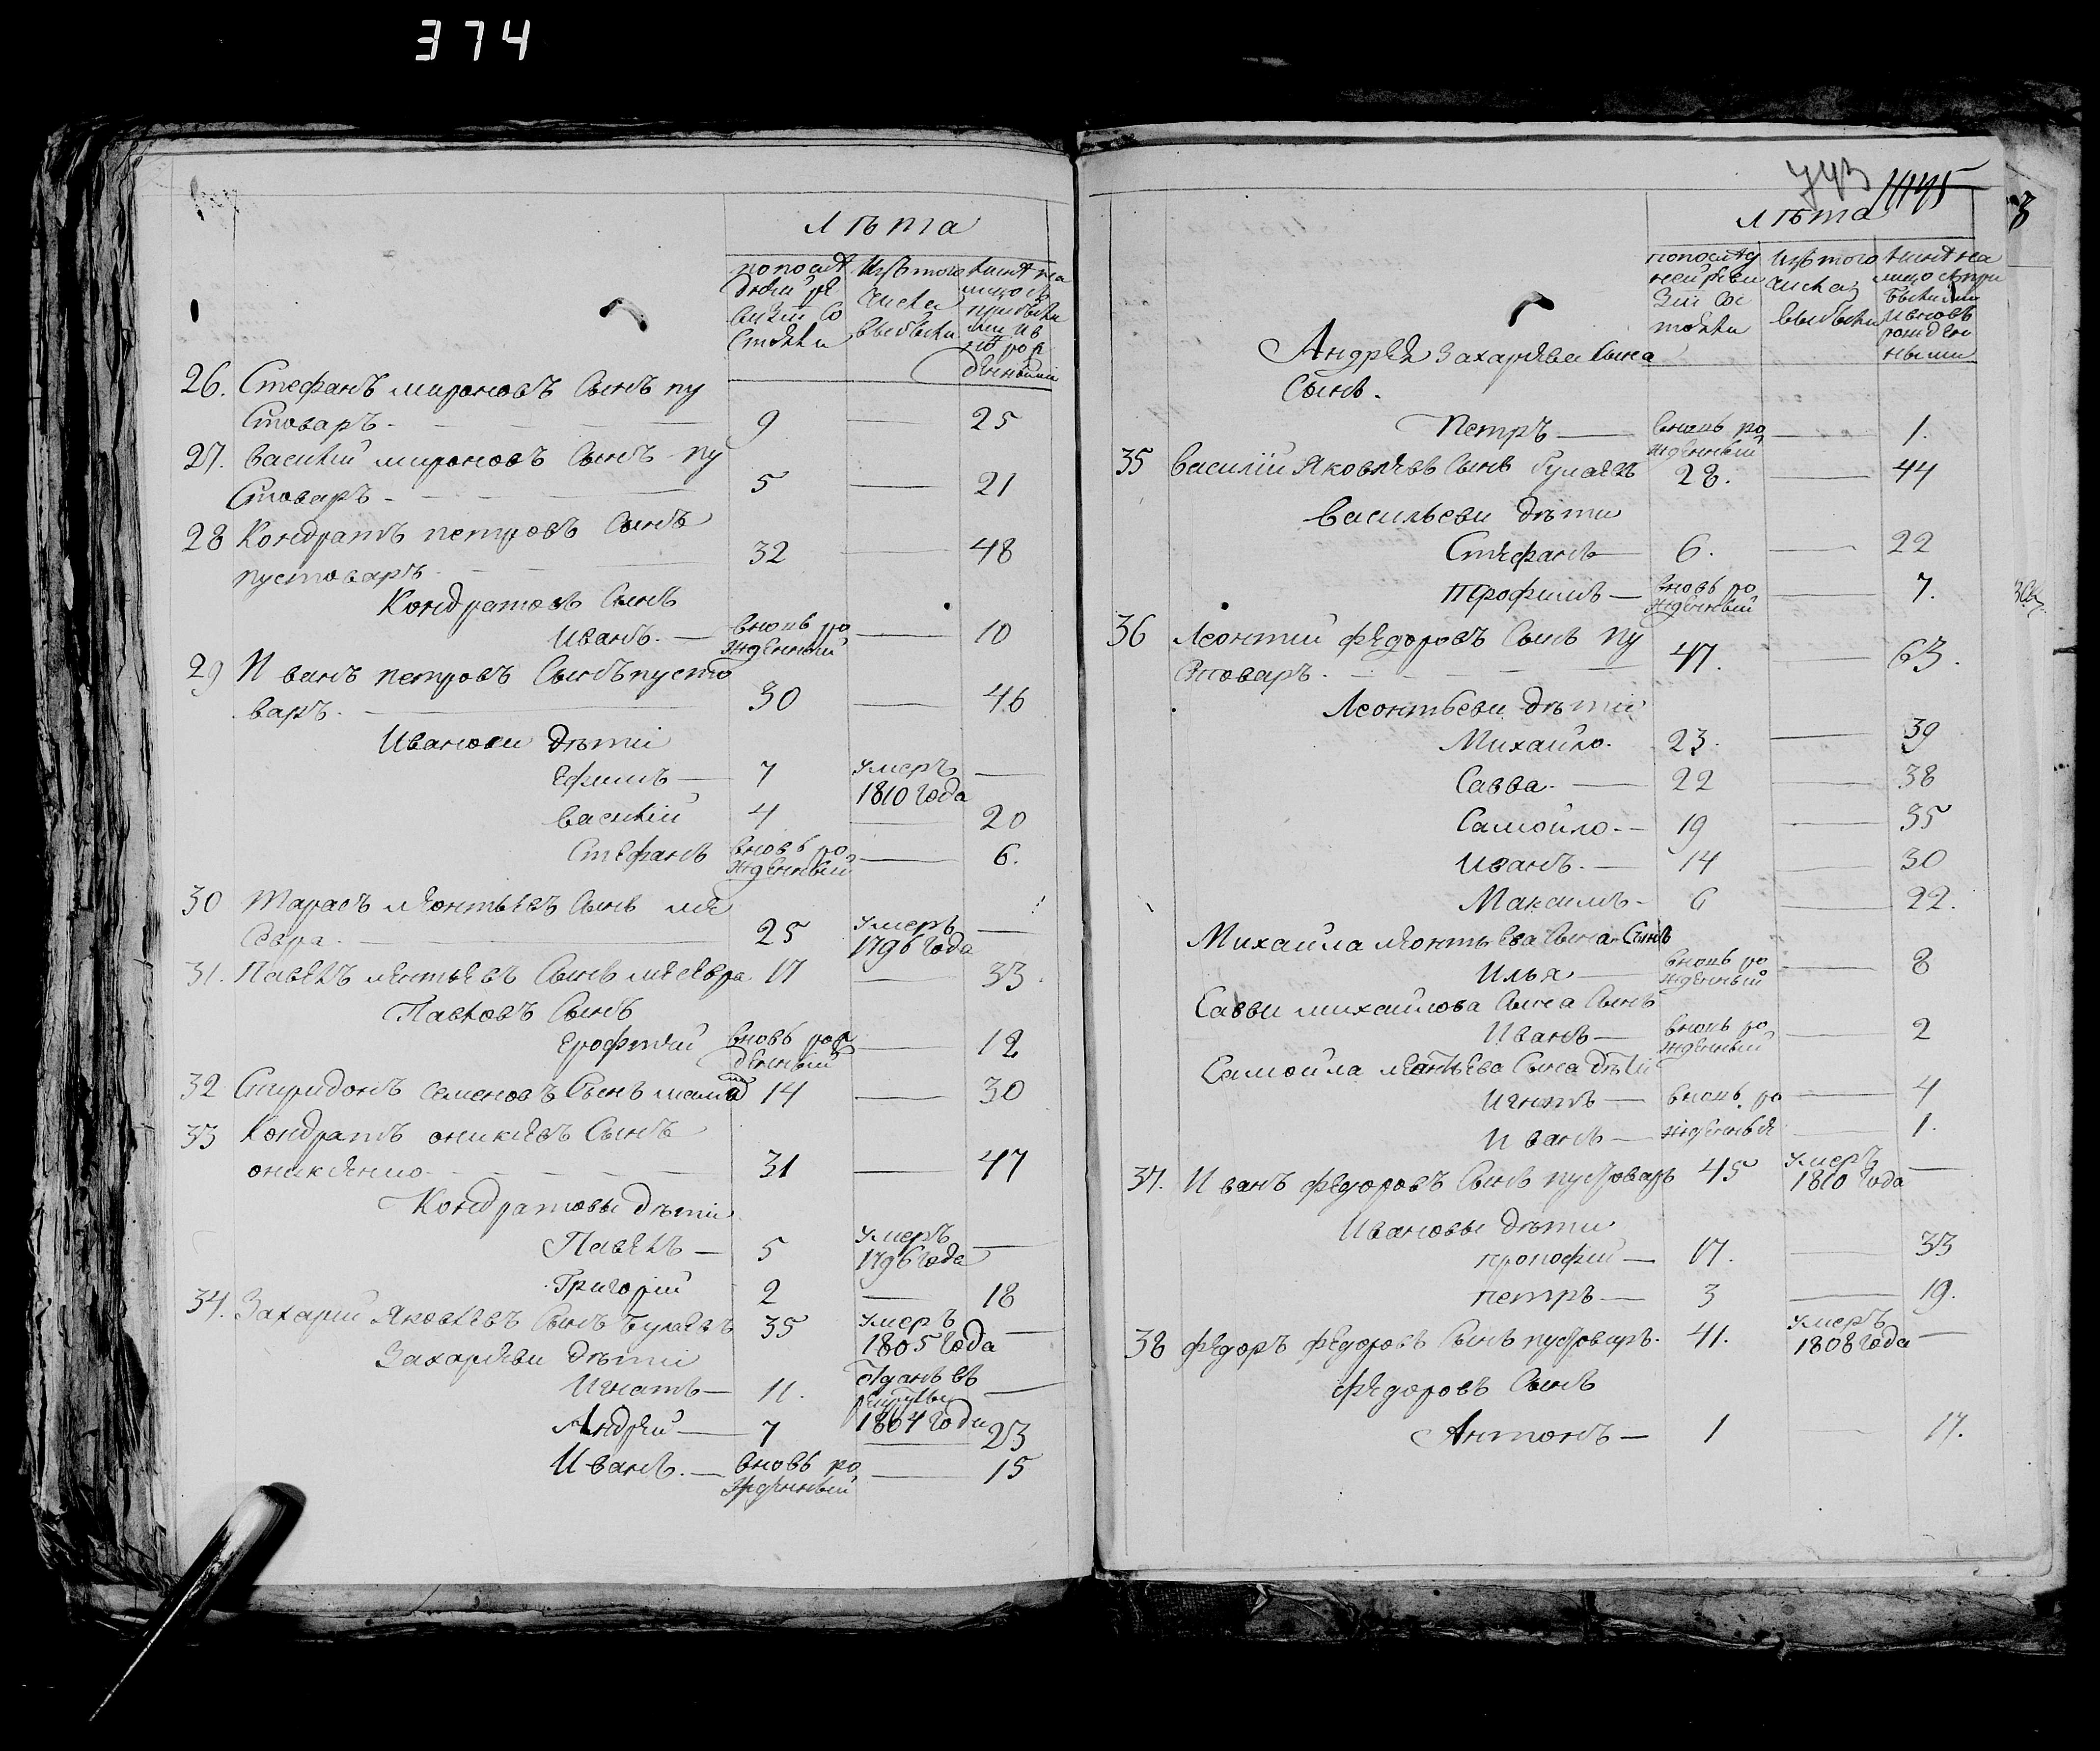 374
Лѣта
по послѣ
дней ре
визіи со
стояли
Изъ того
числа
выбыли
Нынѣ на
лицо съ
прибылы
ми и в
но рож
денными
26. Стефанъ мироновъ Сынъ пу
Стоваръ — 9 — 25
27. василий мироновъ Сынъ пу
Стоваръ — 5 — 21
28 Кондратъ петровъ Сынъ
пустоваръ — 32 — 48
Кондратовъ Сынъ
Иванъ — вновь ро
жденный — 10
29 Иванъ петровъ Сынъ пусто
варъ — 30 — 46
Ивановы дѣти
Ефимъ — 7 умеръ
1810 года —
василий 4 — 20
Стефанъ вновь ро
жденный — 6.
30 Тарасъ леонтьевъ Сынъ
25 умеръ
1796 года —
31. Павелъ леонтьевъ Сынъ 17 — 33
Павловъ Сынъ
Ерофѣй вновь рож
денный — 12
32 Спиридонъ Семеновъ Сынъ 14 — 30
33 Кондратъ оникѣевъ Сынъ
оникѣенко — 31 — 47
Кондратовы дѣти
Павелъ — 5 умеръ
1796 года —
Григорій 2 — 18
34. Захарий яковлевъ Сынъ Гулаевъ 35 умеръ
1805 года —
Захарьеви дѣти
Игнатъ — 11. отданъ въ
рекруты
1804 года —
Андрей — 7 — 23
Иванъ — вновь ро
жденный — 15
443 1145
3
Лѣта
попослѣд
ней реви
зіи со
стояли
Изъ того
числа
выбыли
Нынѣ на
лицо съ при
былыми
и вновь
рожден
ными
Андрея захарьева Сына
Сынъ.
Петръ — вновь ро
жденный — 1.
35 Василій яковлевъ Сынъ Гулаевъ 28. — 44
Васильеви дѣти
Стефанъ — 6. — 22
Трофимъ — вновь ро
жденный — 7.
36 Леонтий федоровъ Сынъ пу
Стоваръ — 47. — 63.
Леонтьеви дѣти
Михайло. 23. — 39
Савва. — 22 — 38
Самойло. — 19 — 35
Иванъ. — 14 — 30
Максимъ — 6 — 22.
Михаила леонтьева Сына Сынъ
Илья — вновь ро
жденный — 8
Савви михаилова Сына Сынъ
Иванъ — вновь ро
жденный — 2
Самоила леонтьева Сына дѣти
Игнатъ — вновь ро — 4
Иванъ — жденные — 1.
37. Иванъ федоровъ Сынъ пустоваръ 45 умеръ
1810 года —
Ивановы дѣти
прокофий — 17. — 33
петръ — 3 — 19.
38 федоръ федоровъ Сынъ пустоваръ. 41. умеръ
1808 года —
федоровъ Сынъ
Антонъ — 1 — 17.